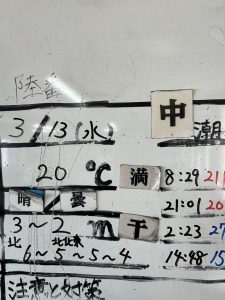 陸番
3/13(水) 中潮
20℃ 満 8:29 211
晴 曇 21:01 20
3~2m 干 2:23 27
北 北北東
6~5~5~4 14:48 15
注意と対策